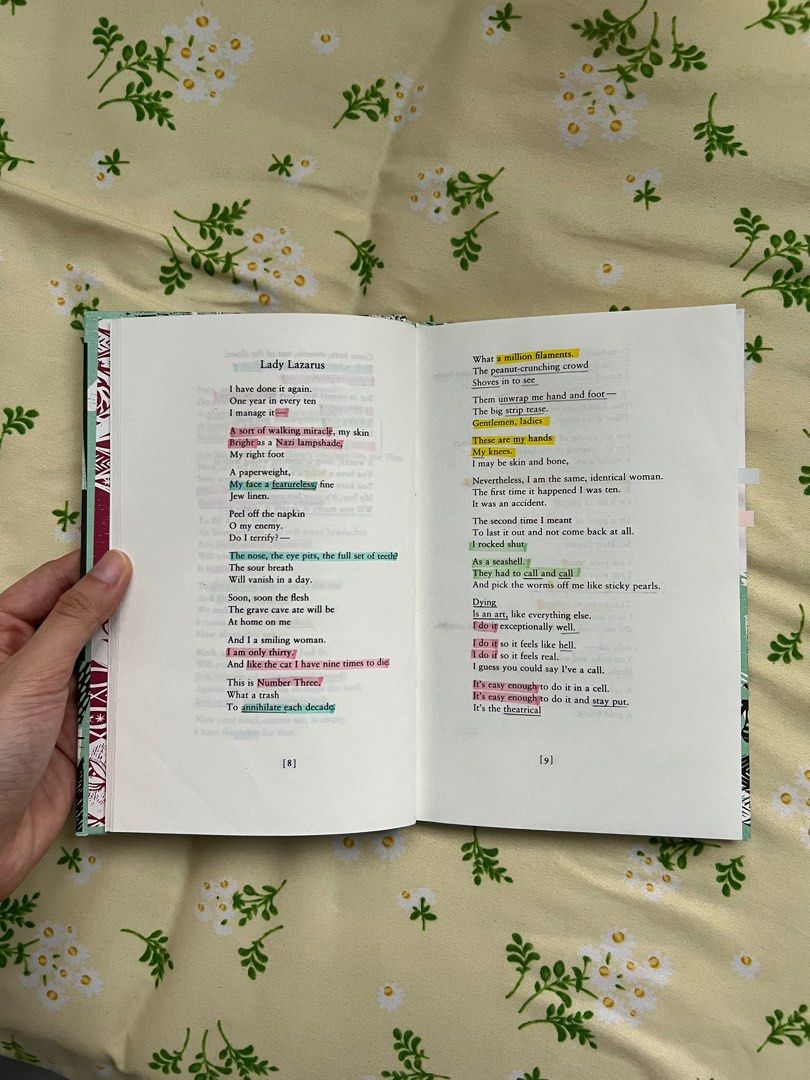 Lady Lazarus
I have done it again.
One year in every ten
I manage it—
A sort of walking miracle, my skin
Bright as a Nazi lampshade,
My right foot
A paperweight,
My face a featureless, fine
Jew linen.
Peel off the napkin
O my enemy.
Do I terrify?—
The nose, the eye pits, the full set of teeth?
The sour breath
Will vanish in a day.
Soon, soon the flesh
The grave cave ate will be
At home on me
And I a smiling woman.
I am only thirty.
And like the cat I have nine times to die.
This is Number Three.
What a trash
To annihilate each decade.
[8]
What a million filaments.
The peanut-crunching crowd
Shoves in to see
Them unwrap me hand and foot—
The big strip tease.
Gentlemen, ladies
These are my hands
My knees.
I may be skin and bone,
Nevertheless, I am the same, identical woman.
The first time it happened I was ten.
It was an accident.
The second time I meant
To last it out and not come back at all.
I rocked shut
As a seashell.
They had to call and call
And pick the worms off me like sticky pearls.
Dying
Is an art, like everything else.
I do it exceptionally well.
I do it so it feels like hell.
I do it so it feels real.
I guess you could say I've a call.
It's easy enough to do it in a cell.
It's easy enough to do it and stay put.
It's the theatrical
[9]